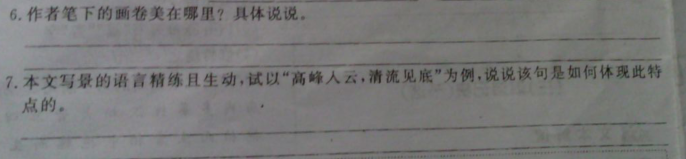 6.作者笔下的画卷美在哪里？具体说说。
7.本文写景的语言精练且生动,试以“高峰人云,清流见底”为例,说说该句是如何体现此特
点的。